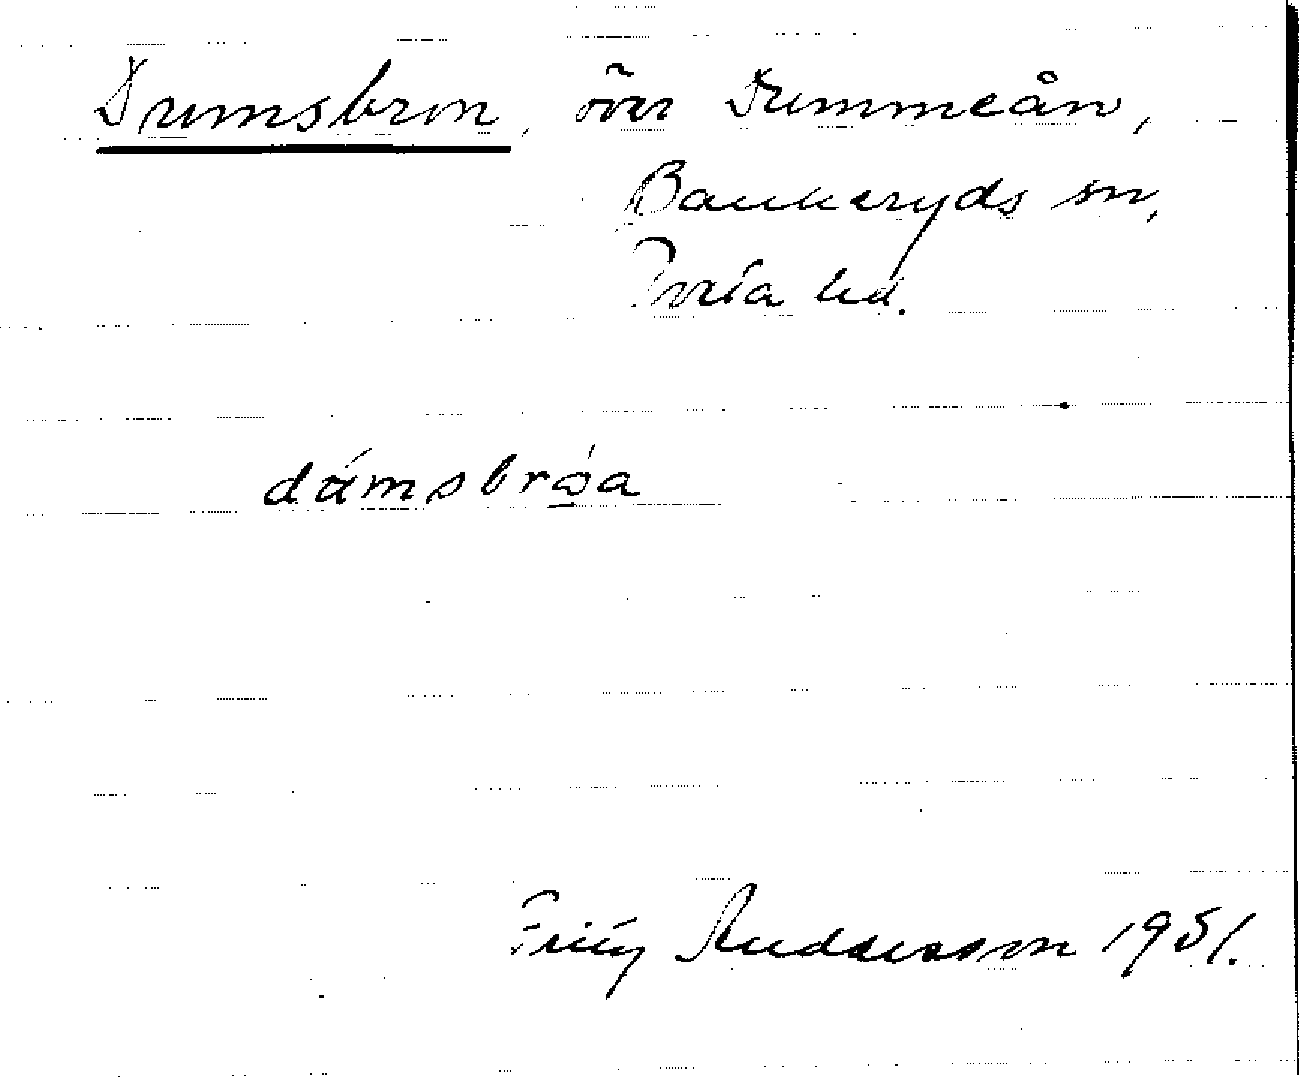 Dumsbron, över Dummeån,
Bankeryds sn,
Tveta hd.
dámsbrǫ́a
Fritz Andersson 1951.